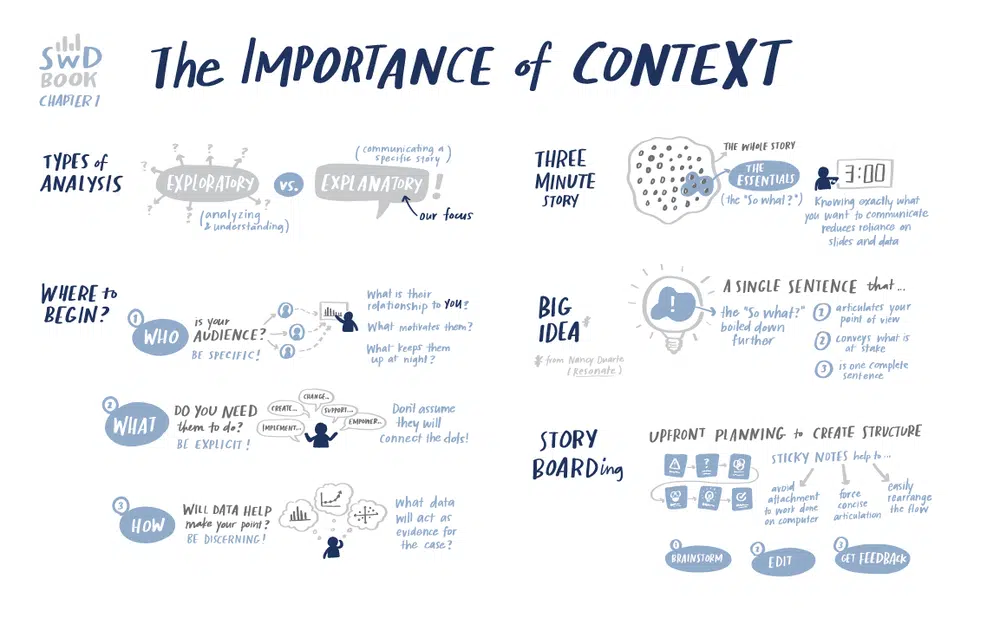 SWD
BOOK
CHAPTER 1
The IMPORTANCE of CONTEXT
TYPES of
ANALYSIS
?
?
?
?
?
?
?
EXPLORATORY
(analyzing
& understanding)
vs.
(communicating a
specific story)
EXPLANATORY
!
our focus
WHERE to
BEGIN?
1
WHO
is your
AUDIENCE?
BE SPECIFIC!
What is their
relationship to YOU?
What motivates them?
What keeps them
up at night?
2
WHAT
DO YOU NEED
them to do?
BE EXPLICIT!
CHANGE...
CREATE...
SUPPORT...
IMPLEMENT...
EMPOWER...
Don't assume
they will
connect the dots!
3
HOW
WILL DATA HELP
make your point?
BE DISCERNING!
What data
will act as
evidence for
the case?
THREE
MINUTE
STORY
THE WHOLE STORY
THE
ESSENTIALS
(the "So what?")
3:00
Knowing exactly what
you want to communicate
reduces reliance on
slides and data
BIG
IDEA*
* from Nancy Duarte
(Resonate)
!
A SINGLE SENTENCE that...
the "So what?"
boiled down
further
1 articulates your
point of view
2 conveys what is
at stake
3 is one complete
sentence
STORY
BOARDing
UPFRONT PLANNING to CREATE STRUCTURE
STICKY NOTES help to...
?
avoid
attachment
to work done
on computer
force
concise
articulation
easily
rearrange
the flow
BRAINSTORM
EDIT
3
GET FEEDBACK